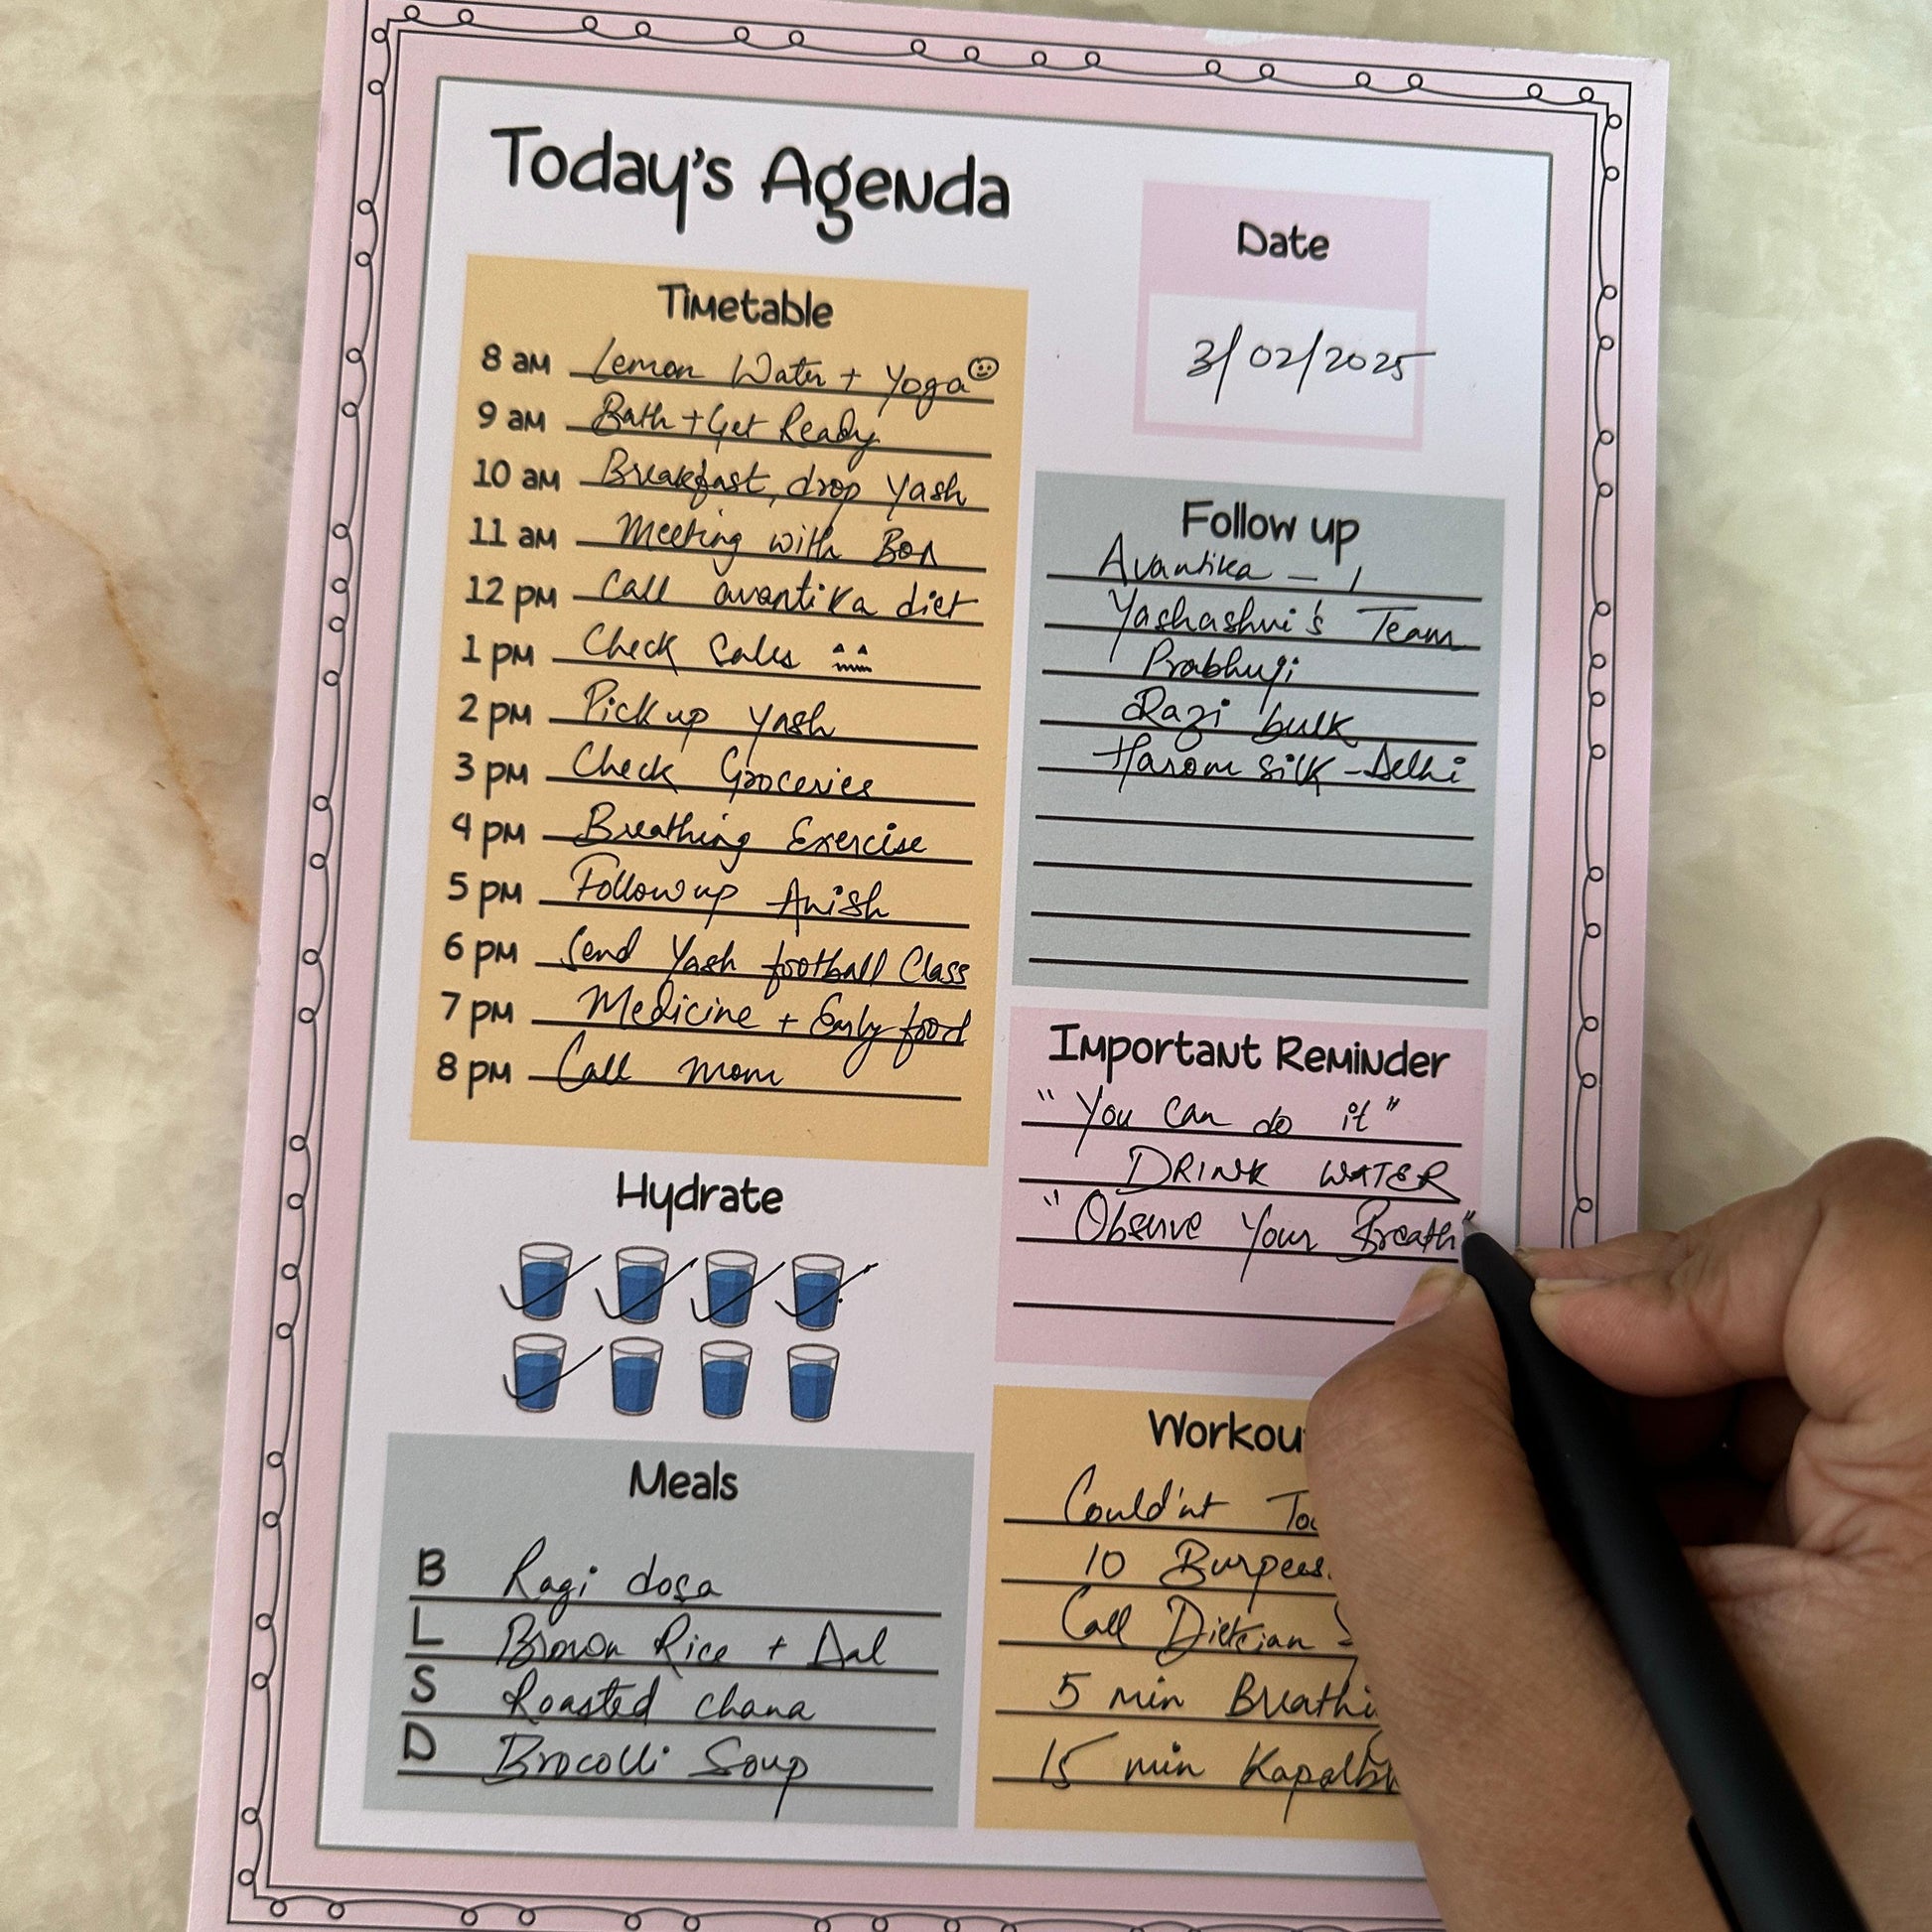 Today's Agenda
Date
3/02/2025
Timetable
8 am Lemon Water + Yoga
9 am Bath + Get Ready
10 am Breakfast, drop Yash
11 am Meeting with
12 pm Call avantika diet
1 pm Check Sales
2 pm Pick up Yash
3 pm Check Groceries
4 pm Breathing Exercise
5 pm Follow up Anish
6 pm Send Yash football Class
7 pm Medicine + Early food
8 pm Call mom
Follow up
Avantika - 1
Yashashvi's Team
Prabhuji
bulk
silk - Delhi
Important Reminder
"You can do it"
DRINK WATER
"Observe Your Breath"
Hydrate
Meals
B Ragi dosa
L Brown Rice + Dal
S Roasted chana
D Brocolli Soup
Workou
Could'nt To
10 Burpees.
Call Dietcian
5 min Breathi
15 min Kapalb